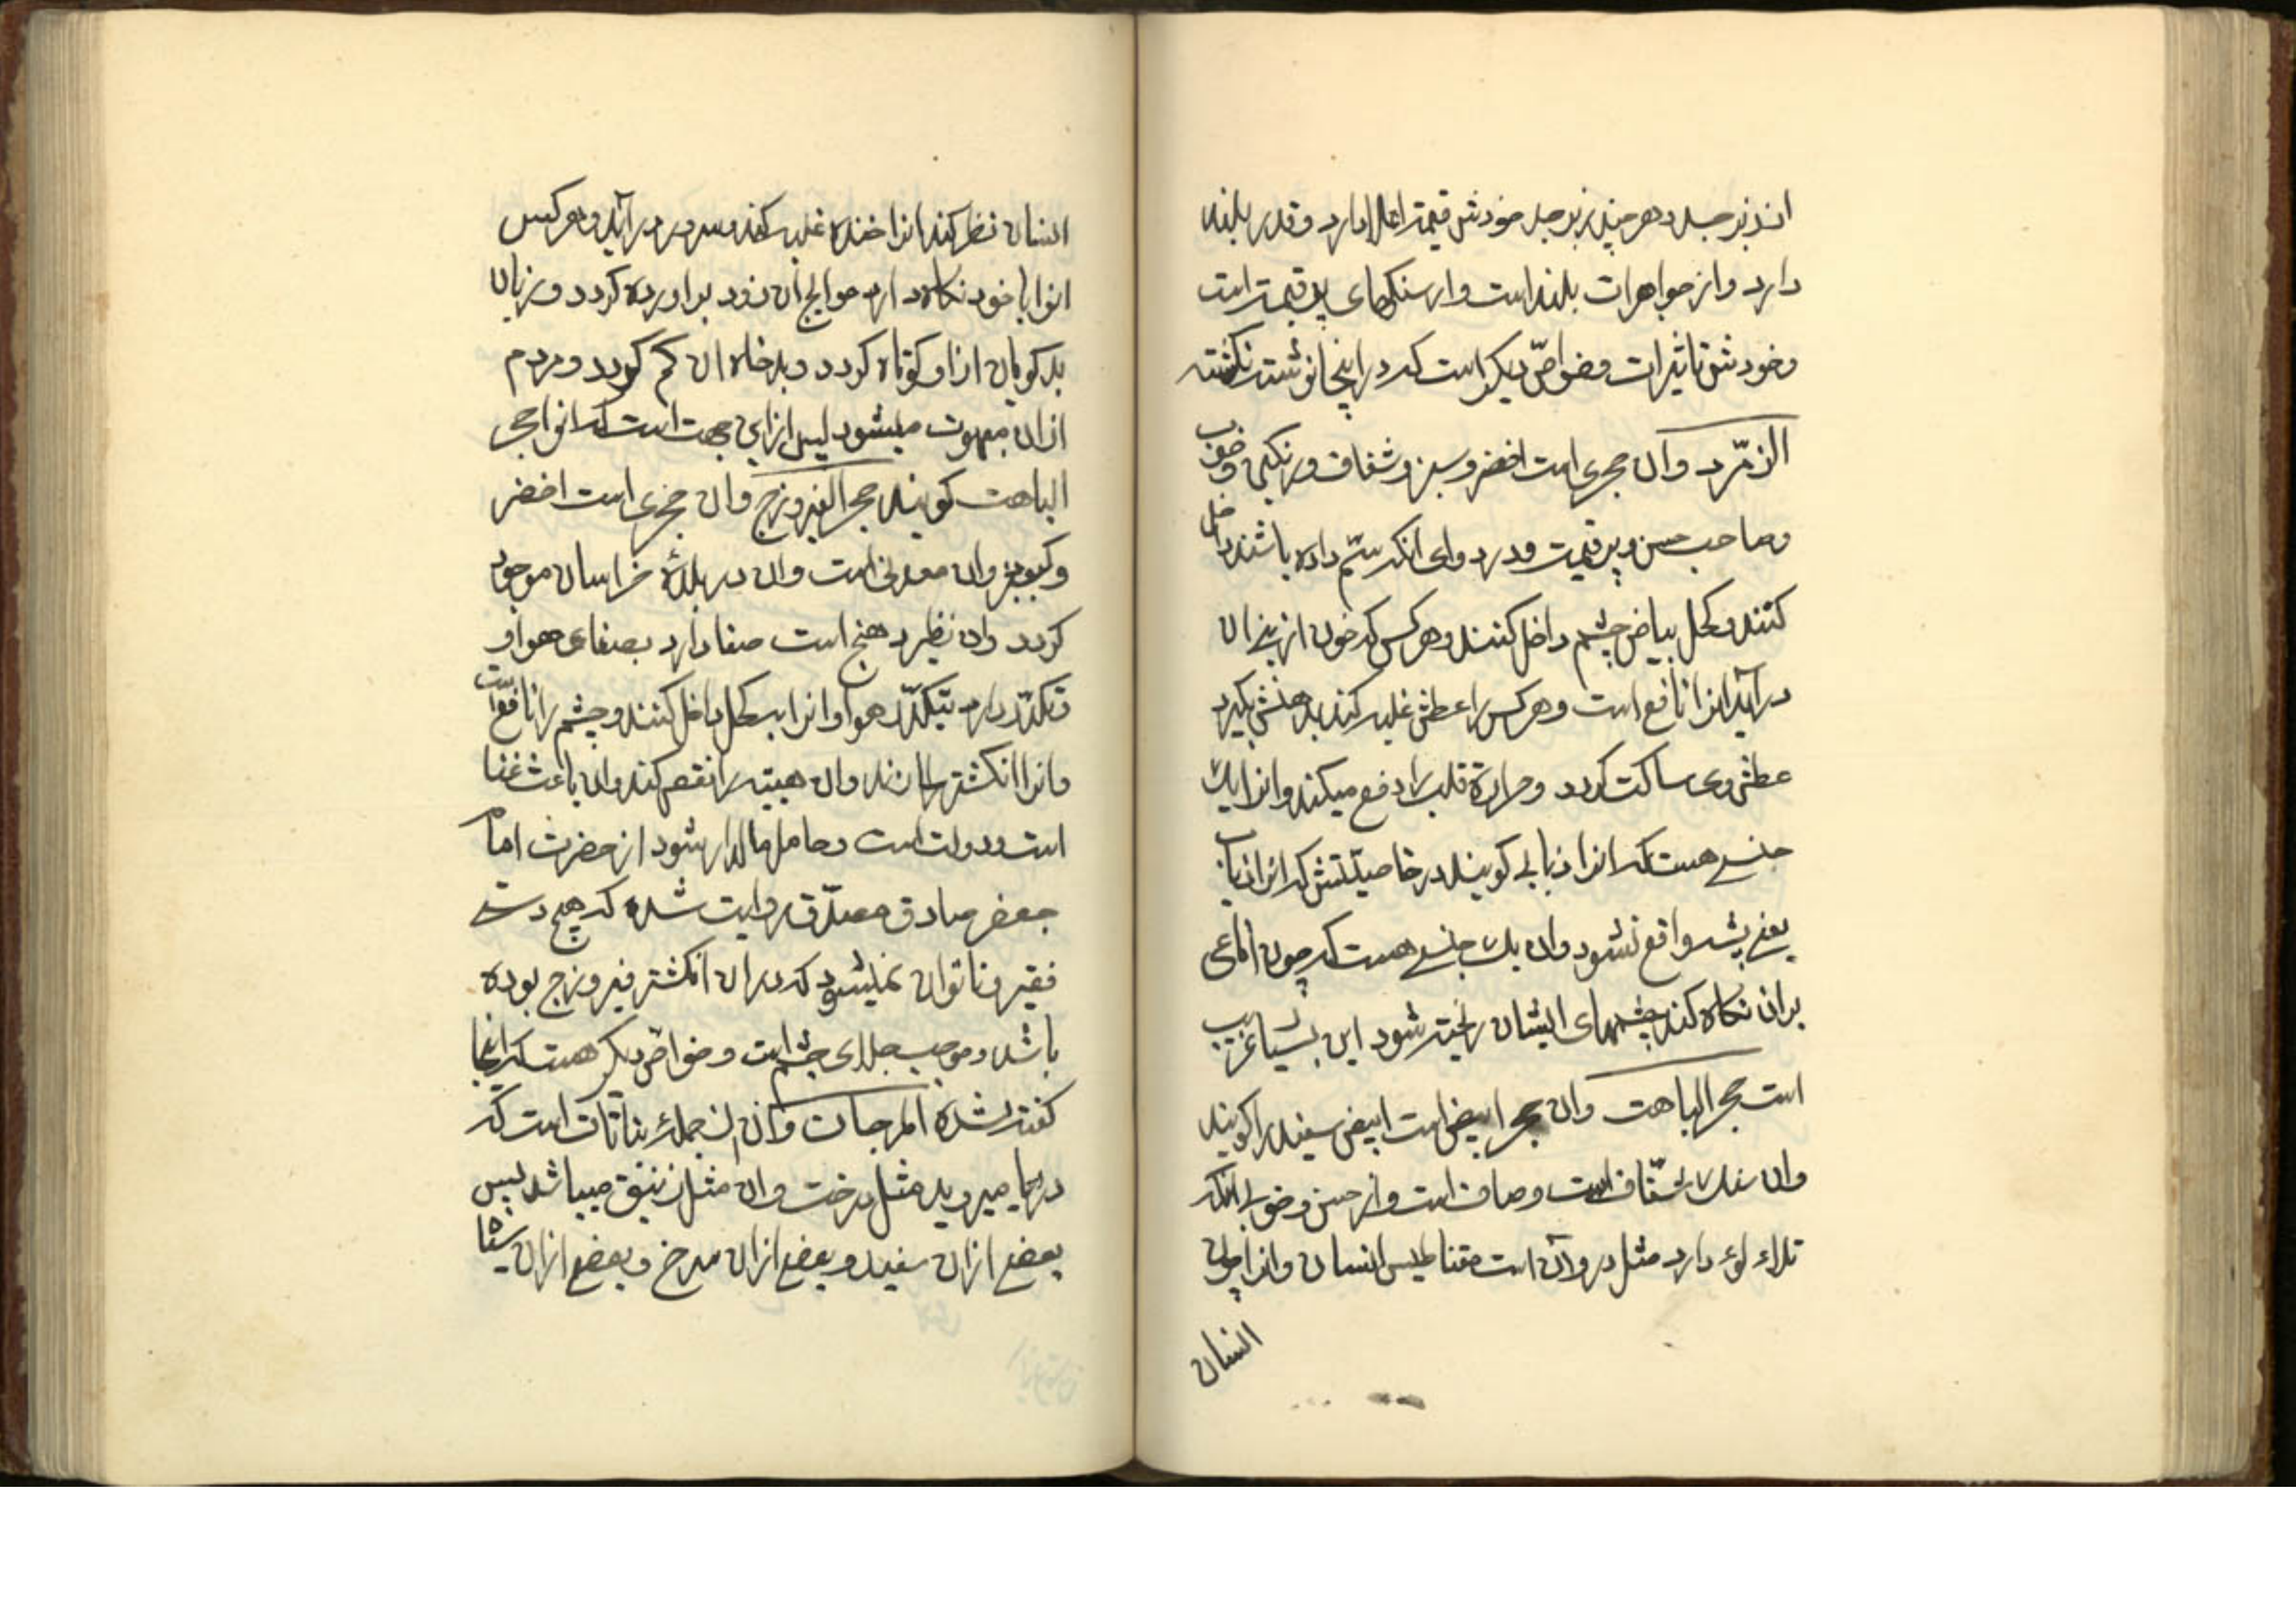 اند زبرجد و هر چند زبرجد خودش قیمت اعلا دارد و قدر بلند
دارد و از جواهرات بلند است و از سنکهای پر قیمت است
و خودش تاثیرات و خواصّ دیکر است که در اینجا نوشته نکشته
الزمّرد وان حجری است اخضر و سبز و شفاف و رنکین و خوب
و صاحب حسن و پر قیمت و در دوای انکه سّم داده باشند داخل
کنند و کحل بیاض چشم داخل کنند و هر کس که خون از بینی ان
در آید انرا نافع است و هر کس را عطش غلبه کند بدهنش بکیرد
عطش وی ساکت کردد و حرارة قلب را دفع میکند و انرا یک
جنسے هست که انرا ذبابی کویند در خاصیّتش که انرا ذباب
یعنی پشه واقع نشود وان یک جنسے هست که چون افاعی
بران نکاه کند چشمهای ایشان ریخته شود این بسیا غریب
است حجر الباهت وان حجر ابیض است ابیض سفید را کویند
وان سنک شفّاف است و صاف است و از حسن و خوبی انکه
تلاء لوء دارد مثل در وآن است مقناطیس انسان وانرا چون
انسان
انسان نظر کند انرا خنده غلبه کند و سرور در آید و هر کس
انرا با خود نکاه دارد حوایج ان زود براورده کردد و زبان
بد کویان از او کوتاه کردد و بدخاه ان کم کردد و مردم
ازان مبهوت میشود لیس از این جهت است که انرا حجر
الباهت کویند حجر الفیروزج وان حجری است اخضر
و کبود وان معدنی است وان در بلدهٔ خراسان موجود
کردد وان نظیر دهنج است صفا دارد بصفای هوا و
تکدّر دارد بتکدّر هوا وانرا بکحل داخل کنند و چشم را نافع است
وانرا انکشتر سازند وان هیبته را نقص کند وان باعث غنا
است و دولت است و حامل مالدار شود از حضرت امام
جعفر صادق مصدّق روایت شده که هیچ دستے
فقیر و ناتوان نمیشود که دران انکشتر فیروزج بوده
باشد و موجب جلای چشم است و خواصّ دیکر هست که اینجا
کفته نشده المرجان وان از جملهٔ نباتات است که
دریا میروید مثل درخت وان مثل زنبق میباشد لیس
بعضے ازان سفید و بعضے ازان سرخ و بعضے ازان سیاه